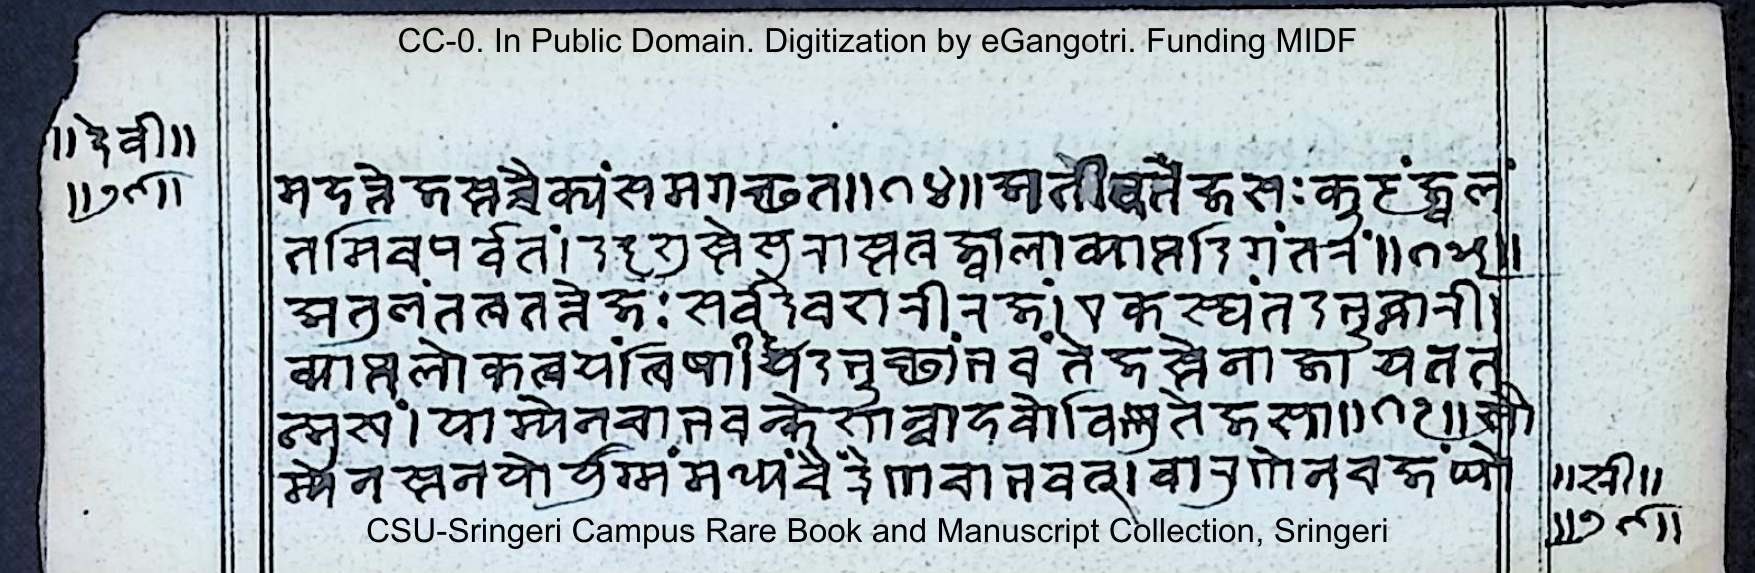 CC-0. In Public Domain. Digitization by eGangotri. Funding MIDF
॥देवी॥
महत्तेजस्तच्चैक्यं समगच्छत॥१४॥अतीव तेजसः कुटं ज्वलं
तमिव पर्वतं। ददृशुस्ते सुरास्तत्र ज्वालाव्याप्तदिगंतरं॥१५॥
अतुलं तत्र तत्तेजः सर्वदेवशरीरजं। एकस्थं तदभून्नारी
व्याप्तलोकत्रयं त्विषा। यदभूच्छांभवं तेजस्तेनाजायत त
न्मुखं। याम्येन चाभवन्केशा बाहवो विष्णुतेजसा॥१७॥सौ
म्येन स्तनयोर्युग्मं मध्यं चैंद्रेण चाभवत्। वारुणेन च जंघो
CSU-Sringeri Campus Rare Book and Manuscript Collection, Sringeri